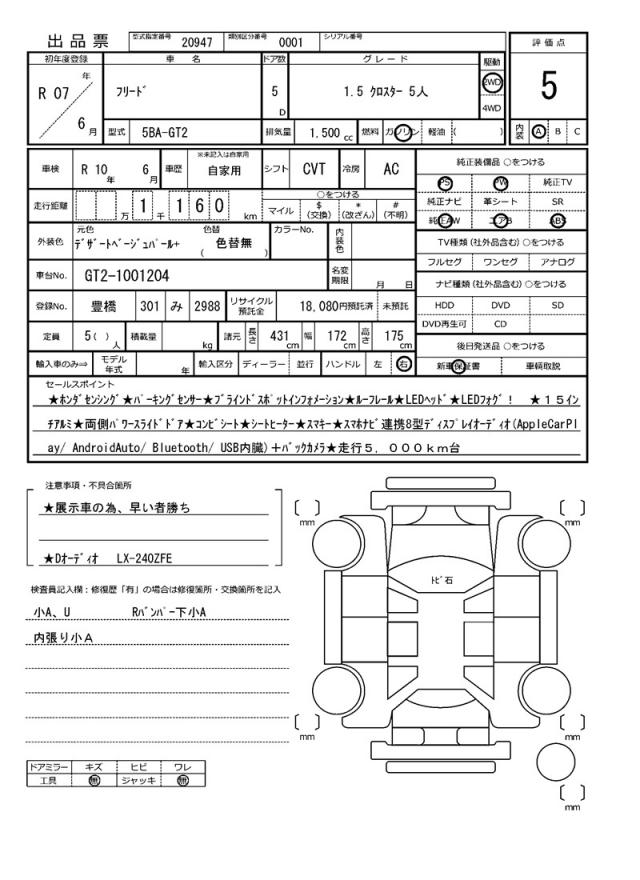 出品票 型式指定番号 20947 類別区分番号 0001 シリアル番号
評価点
5
内装 A B C
初年度登録 車名 ドア数 グレード 駆動
R 07 年 6 月 フリード 5 D 1.5 クロスター 5人 2WD 4WD
型式 5BA-GT2 排気量 1.500 cc 燃料 ガソリン 軽油 ( )
車検 R 10 年 6 月 車歴 ※未記入は自家用 自家用 シフト CVT 冷房 AC
走行距離 万 1 千 1 6 0 km ○をつける
マイル $ (交換) * (改ざん) # (不明)
外装色 元色 デザートベージュパール+ 色替 ( 色替無 ) カラーNo. 内装色
車台No. GT2-1001204 名変期限 月 日
登録No. 豊橋 301 み 2988 リサイクル預託金 18,080円預託済 未預託
定員 5( ) 人 積載量 kg 諸元 長さ 431 cm 幅 172 cm 高さ 175 cm
輸入車のみ⇨ モデル年式 年 輸入区分 ディーラー 並行 ハンドル 左 右
純正装備品 ○をつける
PS PW 純正TV
純正ナビ 革シート SR
純正AW エアB ABS
TV種類 (社外品含む) ○をつける
フルセグ ワンセグ アナログ
ナビ種類 (社外品含む) ○をつける
HDD DVD SD
DVD再生可 CD
後日発送品 ○をつける
新車保証書 車輌取説
セールスポイント
★ホンダセンシング★パーキングセンサー★ブラインドスポットインフォメーション★ルーフレール★LEDヘッド★LEDフォグ! ★15イン
チアルミ★両側パワースライドドア★コンビシート★シートヒーター★スマキー★スマホナビ連携8型ディスプレイオーディオ(AppleCarPl
ay/ AndroidAuto/ Bluetooth/ USB内臓)+バックカメラ★走行5，000km台
注意事項・不具合箇所
★展示車の為、早い者勝ち
★Dオーディオ LX-240ZFE
検査員記入欄：修復歴「有」の場合は修復箇所・交換箇所を記入
小A、U Rバンパー下小A
内張り小A
ドアミラー キズ ヒビ ワレ
工具 無 ジャッキ 無
mm mm
トビ石
mm mm
mm